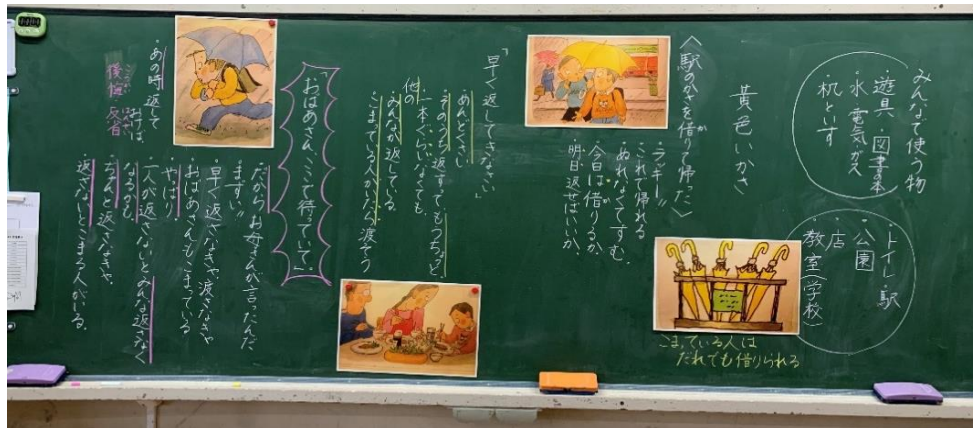 みんなで使う物
・遊具 ・図書の本
・水 電気 ガス
・机といす
・トイレ ・駅
・公園
・店
・教室(学校)
黄色いかさ
こまっている人は
だれでも借りられる
〈駅のかさを借りて帰った〉
・ラッキー〃
・これで帰れる
・ぬれなくてすむ。
・今日は借りるか。
・明日返せばいいか。
「早く返してきなさい」
・めんどくさい
・そのうち返すってもうちょっと
・一本ぐらいなくても
他の
みんなが返している
・こまっている人がいたら渡そう
「おばあさん、ここで待っていて。」
・あの時返して
おけば、
後悔 反省
・だからお母さんが言ったんだ
・まずい〃
・早く返さなきゃ渡さなきゃ
・おばあさんもこまっている
・やっぱり
・人が返さないとみんな返さなく
なるかも
・ちゃんと返さなきゃ。
・返さないとこまる人がいる。